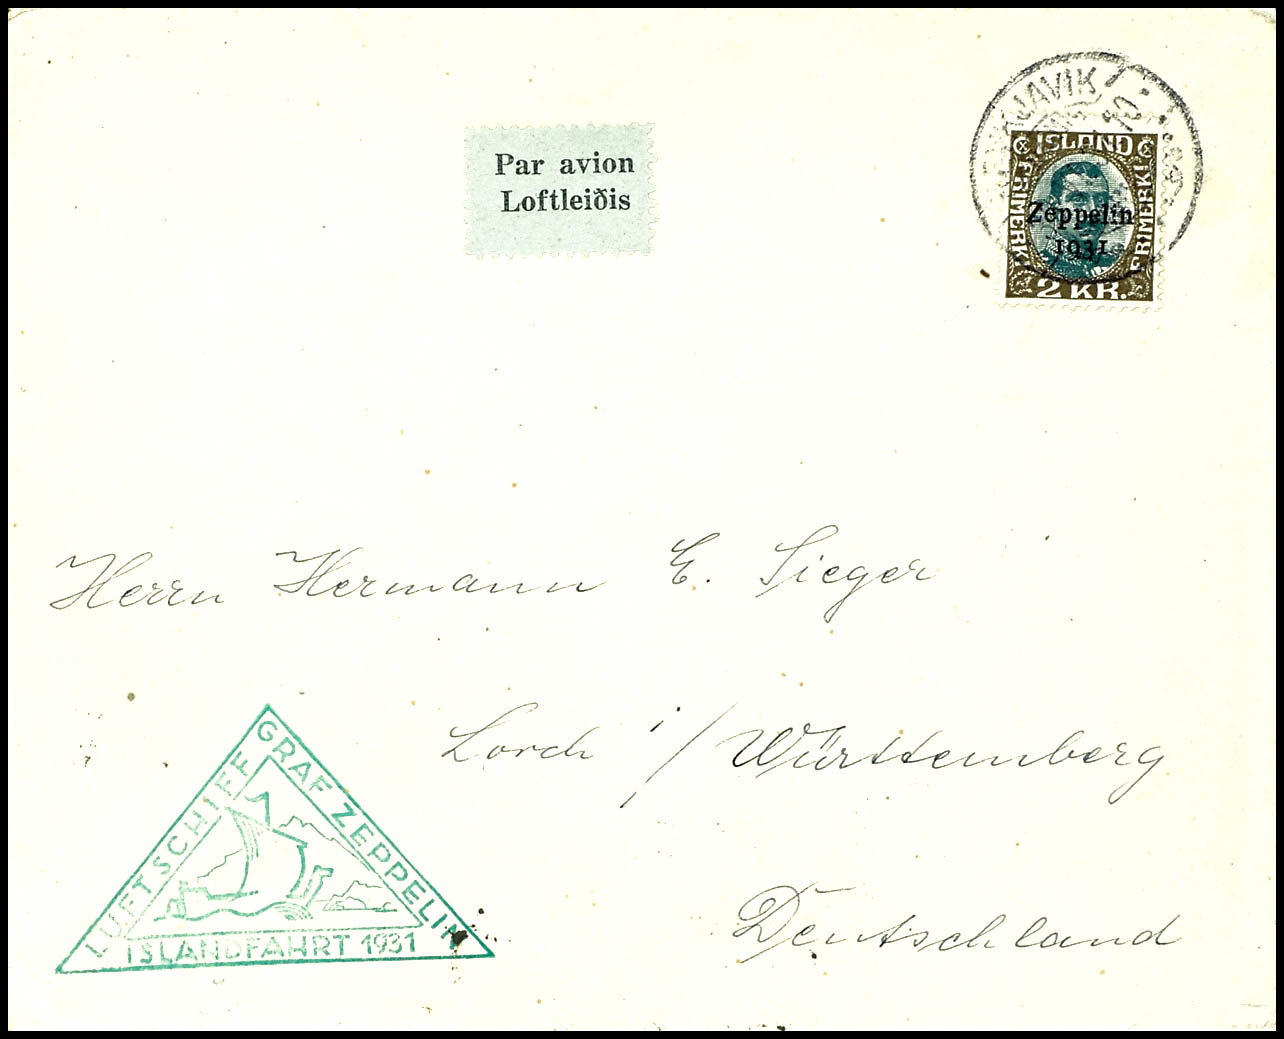 Par avion
Loftleiðis
REYKJAVIK
ISLAND
FRIMERKI
FRIMERKI
Zeppelin
1931
2 KR.
Herrn Hermann E. Sieger
Lorch i/Württemberg
Deutschland
LUFTSCHIFF
GRAF ZEPPELIN
ISLANDFAHRT 1931